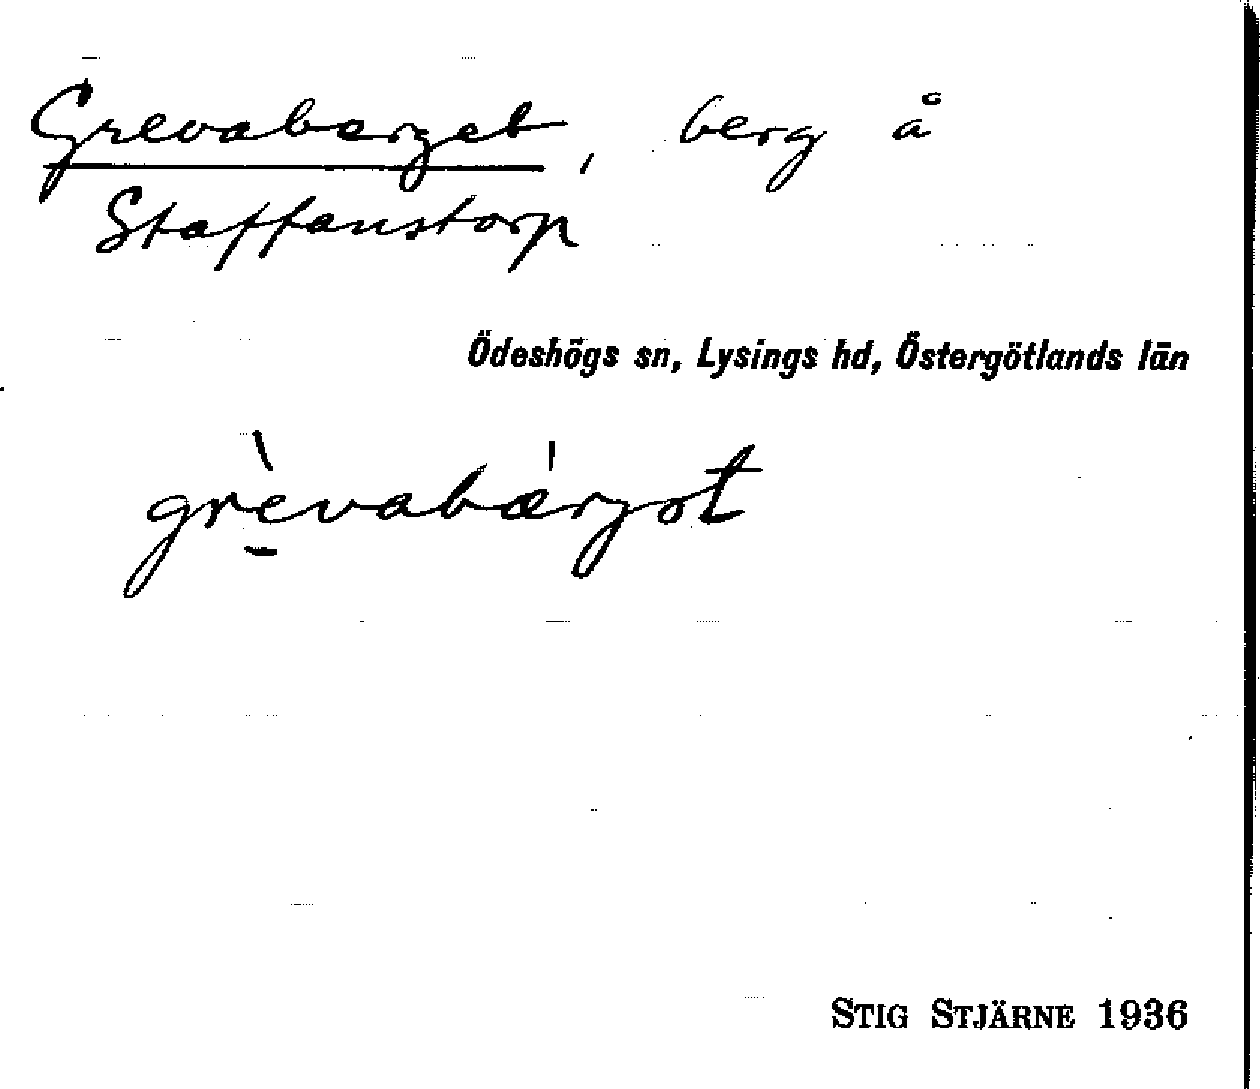 Grevaberget, berg å
Staffanstorp
Ödeshögs sn, Lysings hd, Östergötlands län
grèvabærjot
STIG STJÄRNE 1936